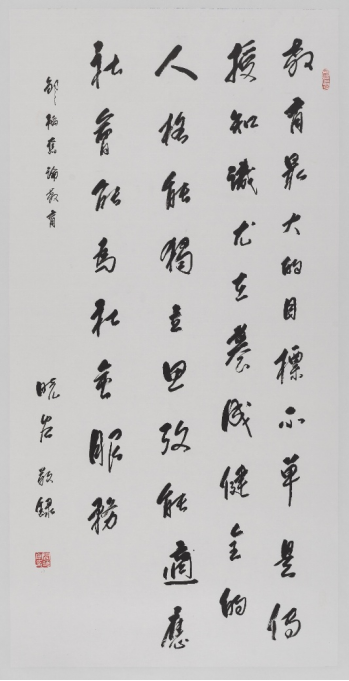 教育最大的目標不单是傳
授知識尤在養成健全的
人格能獨立思攷能適應
社會能為社會服務
鄒韜奮論教育
晓岩敬録